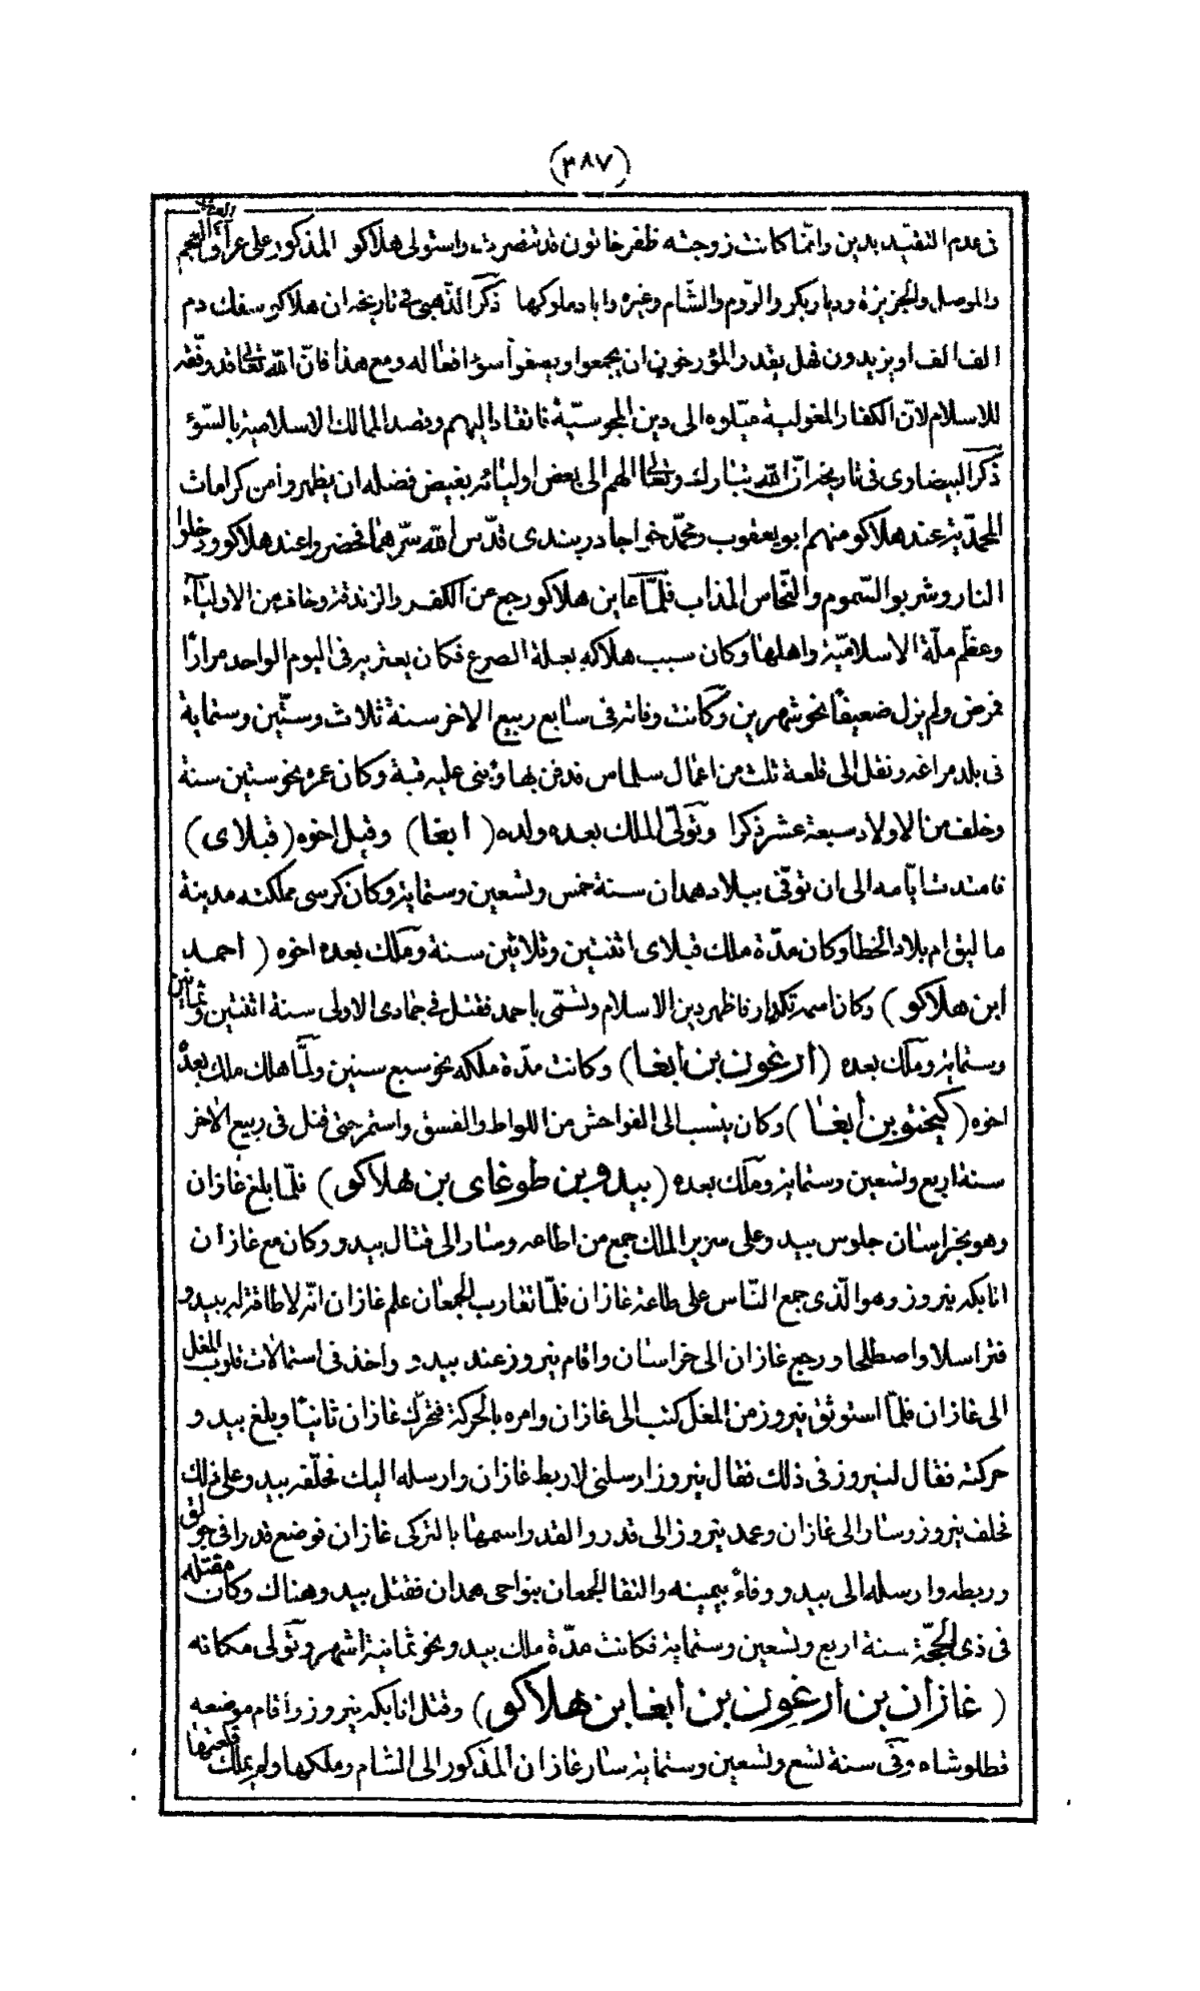 (٣٨٧)
فى عدم التقيّد بدين وانّما كانت زوجته ظفر خاتون قد تنصرت واستولى هلاكو المذكور على عراق العجم
والموصل والجزيرة وديار بكر والرّوم والشّام وغيره واباد ملوكها ذكر الذّهبى فى تاريخه ان هلاكو سفك دم
الف الف او يزيدون فهل يقدر المؤرخون ان يجمعوا ويصفوا سوء افعاله ومع هذا فانّ الله تعالى قد وفّقه
للاسلام لانّ الكفار المغولية ميّلوه الى دين المجوسيّة فانقاد اليهم وقصد الممالك الاسلامية بالسّوء
ذكر البيضاوى فى تاريخه انّ الله تبارك وتعالى الهم الى بعض اوليائه بفيض فضله ان يظهروا من كرامات
المحمّدية عند هلاكو منهم ابو يعقوب ومحمّد خواجا دربندى قدّس الله سرّهما فحضروا عند هلاكو ودخلوا
النار وشربوا السّموم والنّحاس المذاب فلمّا عاين هلاكو رجع عن الكفر والزندقة وخاف من الاولياء
وعظّم ملّة الاسلاميّة واهلها وكان سبب هلاكه بعلة الصرع فكان يعتريه فى اليوم الواحد مرارًا
فمرض ولم يزل ضعيفًا نحو شهرين وكانت وفاته فى سابع ربيع الاخر سنة ثلاث وستّين وستماية
فى بلد مراغه ونقل الى قلعة تلث من اعمال سلماس فدفن بها وبنى عليه قبة وكان عمره نحو ستين سنة
وخلف من الاولاد سبعة عشر ذكرا وتولّى الملك بعده ولده (ابغا) وقيل اخوه (قبلاى)
فامتدت ايّامه الى ان توفّى ببلاد همدان سنة خمس وتسعين وستماية وكان كرسى مملكته مدينة
ماليق ام بلاد الخطا وكان مدّة ملك قبلاى اثنتين وثلاثين سنة وملك بعده اخوه (احمد
ابن هلاكو) وكان اسمه تكدار فاظهر دين الاسلام وتسمّى باحمد فقتل فى جمادى الاولى سنة اثنتين وثمانين
وستماية وملك بعده (ارغون بن أبغا) وكانت مدّة ملكه نحو سبع سنين ولمّا هلك ملك بعده
اخوه (كيختو بن أبغا) وكان ينسب الى الفواحش من اللواط والفسق واستمر حتى قتل فى ربيع الآخر
سنة اربع وتسعين وستماية وملك بعده (بيدو بن طوغاى بن هلاكو) فلمّا بلغ غازان
وهو بخراسان جلوس بيدو على سرير الملك جمع من اطاعه وسار الى قتال بيدو وكان مع غازان
اتابكه نيروز وهو الّذى جمع النّاس على طاعة غازان فلمّا تقارب الجمعان علم غازان انّه لا طاقة له ببيدو
فتراسلا واصطلحا ورجع غازان الى خراسان واقام نيروز عند بيدو واخذ فى استمالات قلوب المغل
الى غازان فلمّا استوثق نيروز من المغل كتب الى غازان وامره بالحركة فتحرّك غازان ثانيًا وبلغ بيدو
حركته فقال لنيروز فى ذلك فقال نيروز ارسلنى لاربط غازان وارسله اليك فحلّفه بيدو على ذلك
فحلف نيروز وسار الى غازان وعمد نيروز الى قدر والقدر اسمها بالتركى غازان فوضع قدرا فى جولق
وربطه وارسله الى بيدو وفاءً بيمينه والتقا الجمعان بنواحى همدان فقتل بيدو هناك وكان مقتله
فى ذى الحجّة سنة اربع وتسعين وستماية فكانت مدّة ملك بيدو نحو ثمانية اشهر وتولى مكانه
(غازان بن ارغون بن أبغا بن هلاكو) وقتل اتابكه نيروز واقام موضعه
قطلوشاه وفى سنة تسع وتسعين وستماية سار غازان المذكور الى الشام وملكها ولم يملك قلعتها